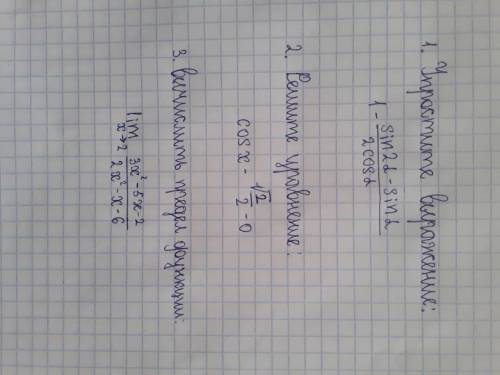 1. Упростите выражение:
1 - sin2α - sinα / 2cosα
2. Решите уравнение:
cos x - √2/2 - 0
3. Вычислить предел функции:
lim x→2 3x² - 5x - 2 / 2x² - x - 6